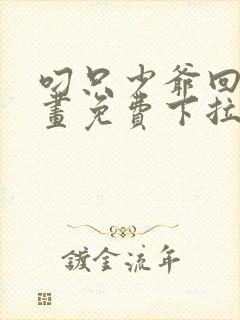 叼只少爷回
畫免費下拉
鍍金流年